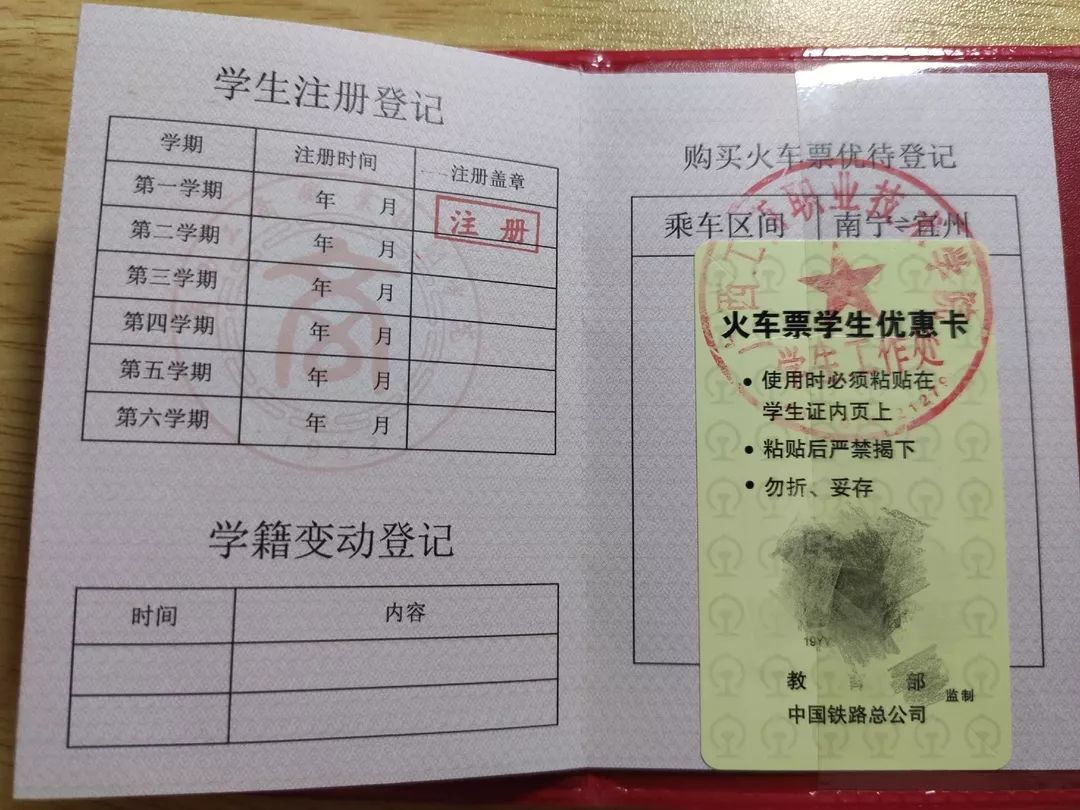 学生注册登记
学期 注册时间 注册盖章
第一学期 年 月 注 册
第二学期 年 月
第三学期 年 月
第四学期 年 月
第五学期 年 月
第六学期 年 月
商
学籍变动登记
时间 内容
购买火车票优待登记
乘车区间 南宁⇌宜州
职业技
学院
学生工作处
火车票学生优惠卡
• 使用时必须粘贴在
学生证内页上
• 粘贴后严禁揭下
• 勿折、妥存
19YY
教 部 监制
中国铁路总公司